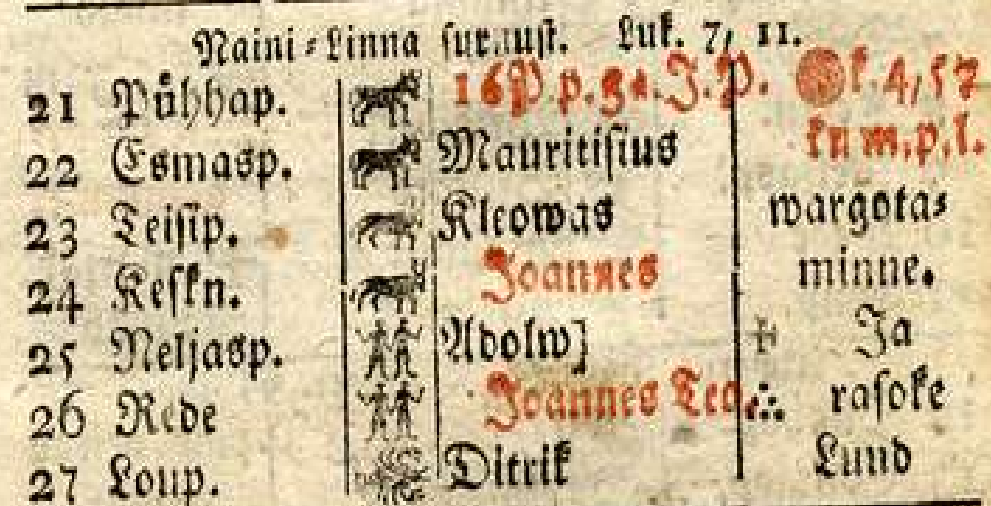 Naini-Linna suraust. Luk. 7, 11.
21 Pühhap. 16 P. p. 3a. J. P. k. 4, 57
22 Esmasp. Mauritisius kn m. p. l.
23 Teisip. Kleowas wargota-
24 Keskn. Joannes minne.
25 Neljasp. Adolw] Ja
26 Rede Joannes Tea. rasoke
27 Loup. Ditrik Lund